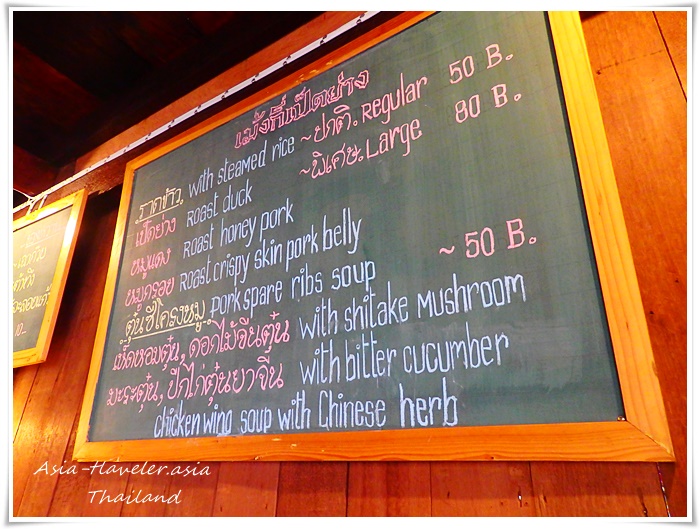 เม้งกี่เป็ดย่าง
ราดข้าว, with steamed rice ~ ปกติ. Regular 50 B.
~ พิเศษ. Large 80 B.
เป็ดย่าง Roast duck
หมูแดง Roast honey pork
หมูกรอบ Roast crispy skin pork belly
ตุ๋นซี่โครงหมู, pork spare ribs soup ~ 50 B.
เห็ดหอมตุ๋น, ดอกไม้จีนตุ๋น with shitake mushroom
มะระตุ๋น, ปีกไก่ตุ๋นยาจีน with bitter cucumber
chicken wing soup with Chinese herb
Asia-Haveler.asia
Thailand